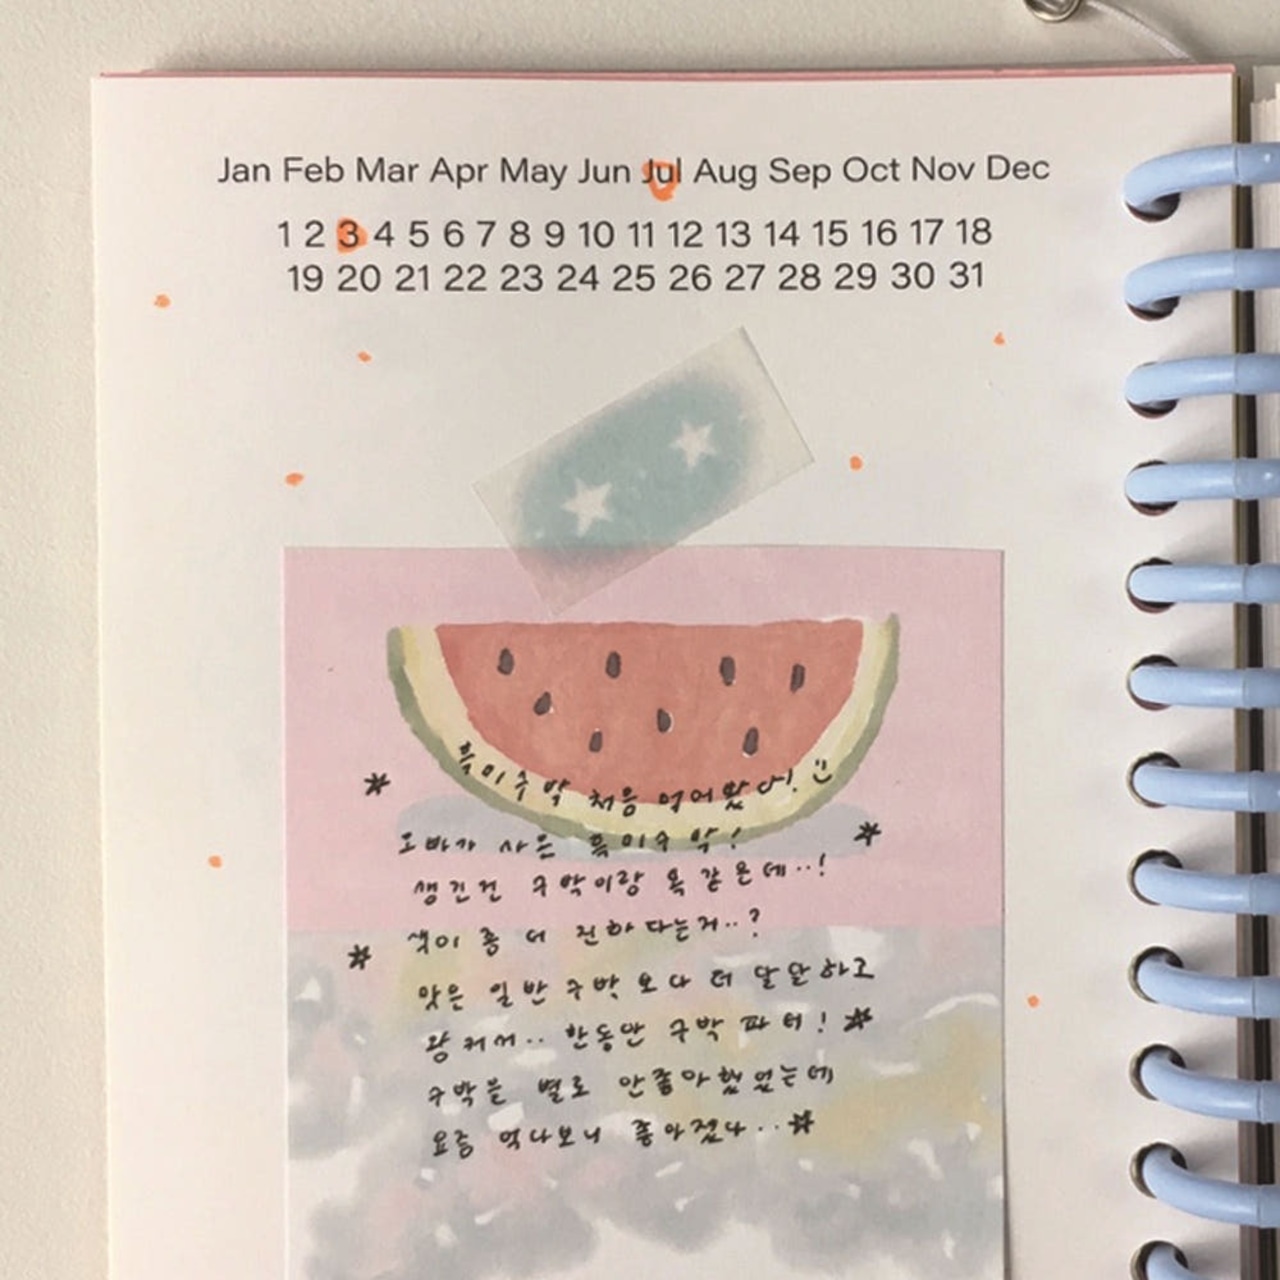 Jan Feb Mar Apr May Jun Jul Aug Sep Oct Nov Dec
1 2 3 4 5 6 7 8 9 10 11 12 13 14 15 16 17 18
19 20 21 22 23 24 25 26 27 28 29 30 31
흑미수박 처음 먹어봤다!
오빠가 사온 흑미수박!
생긴건 수박이랑 똑같은데..!
색이 좀 더 진하다는거..?
맛은 일반 수박 보다 더 달달하고
왕 커서.. 한동안 수박 파티!
수박을 별로 안좋아했었는데
요즘 먹다보니 좋아졌다..